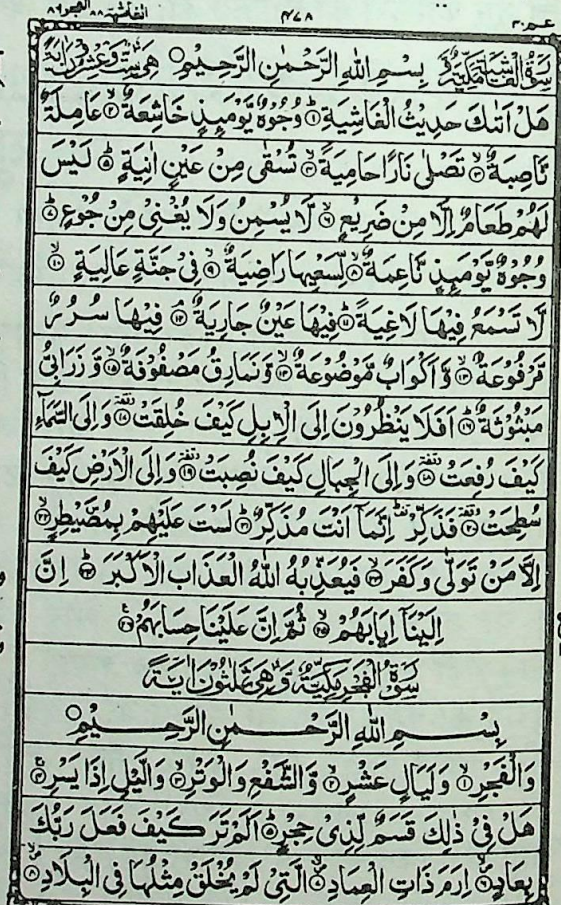 عم ٣٠ ٤٧٨ الغاشية ٨٨ الفجر ٨٩
سورة الغاشية مكية بِسْمِ اللّٰهِ الرَّحْمٰنِ الرَّحِيْمِ هى ست وعشرون اية
هَلْ اَتٰىكَ حَدِيْثُ الْغَاشِيَةِ ١ وُجُوْهٌ يَّوْمَىِٕذٍ خَاشِعَةٌ ٢ عَامِلَةٌ
نَّاصِبَةٌ ٣ تَصْلٰى نَارًا حَامِيَةً ٤ تُسْقٰى مِنْ عَيْنٍ اٰنِيَةٍ ٥ لَيْسَ
لَهُمْ طَعَامٌ اِلَّا مِنْ ضَرِيْعٍ ٦ لَّا يُسْمِنُ وَلَا يُغْنِىْ مِنْ جُوْعٍ ٧
وُجُوْهٌ يَّوْمَىِٕذٍ نَّاعِمَةٌ ٨ لِّسَعْيِهَا رَاضِيَةٌ ٩ فِىْ جَنَّةٍ عَالِيَةٍ ١٠
لَّا تَسْمَعُ فِيْهَا لَاغِيَةً ١١ فِيْهَا عَيْنٌ جَارِيَةٌ ١٢ فِيْهَا سُرُرٌ
مَّرْفُوْعَةٌ ١٣ وَّاَكْوَابٌ مَّوْضُوْعَةٌ ١٤ وَّنَمَارِقُ مَصْفُوْفَةٌ ١٥ وَّزَرَابِىُّ
مَبْثُوْثَةٌ ١٦ اَفَلَا يَنْظُرُوْنَ اِلَى الْاِبِلِ كَيْفَ خُلِقَتْ ١٧ وَاِلَى السَّمَآءِ
كَيْفَ رُفِعَتْ ١٨ وَاِلَى الْجِبَالِ كَيْفَ نُصِبَتْ ١٩ وَاِلَى الْاَرْضِ كَيْفَ
سُطِحَتْ ٢٠ فَذَكِّرْ اِنَّمَآ اَنْتَ مُذَكِّرٌ ٢١ لَسْتَ عَلَيْهِمْ بِمُصَۜيْطِرٍ ٢٢
اِلَّا مَنْ تَوَلّٰى وَكَفَرَ ٢٣ فَيُعَذِّبُهُ اللّٰهُ الْعَذَابَ الْاَكْبَرَ ٢٤ اِنَّ
اِلَيْنَآ اِيَابَهُمْ ٢٥ ثُمَّ اِنَّ عَلَيْنَا حِسَابَهُمْ ٢٦
سورة الفجر مكية وهى ثلثون اية
بِسْمِ اللّٰهِ الرَّحْمٰنِ الرَّحِيْمِ
وَالْفَجْرِ ١ وَلَيَالٍ عَشْرٍ ٢ وَّالشَّفْعِ وَالْوَتْرِ ٣ وَالَّيْلِ اِذَا يَسْرِ ٤
هَلْ فِىْ ذٰلِكَ قَسَمٌ لِّذِىْ حِجْرٍ ٥ اَلَمْ تَرَ كَيْفَ فَعَلَ رَبُّكَ
بِعَادٍ ٦ اِرَمَ ذَاتِ الْعِمَادِ ٧ الَّتِىْ لَمْ يُخْلَقْ مِثْلُهَا فِى الْبِلَادِ ٨